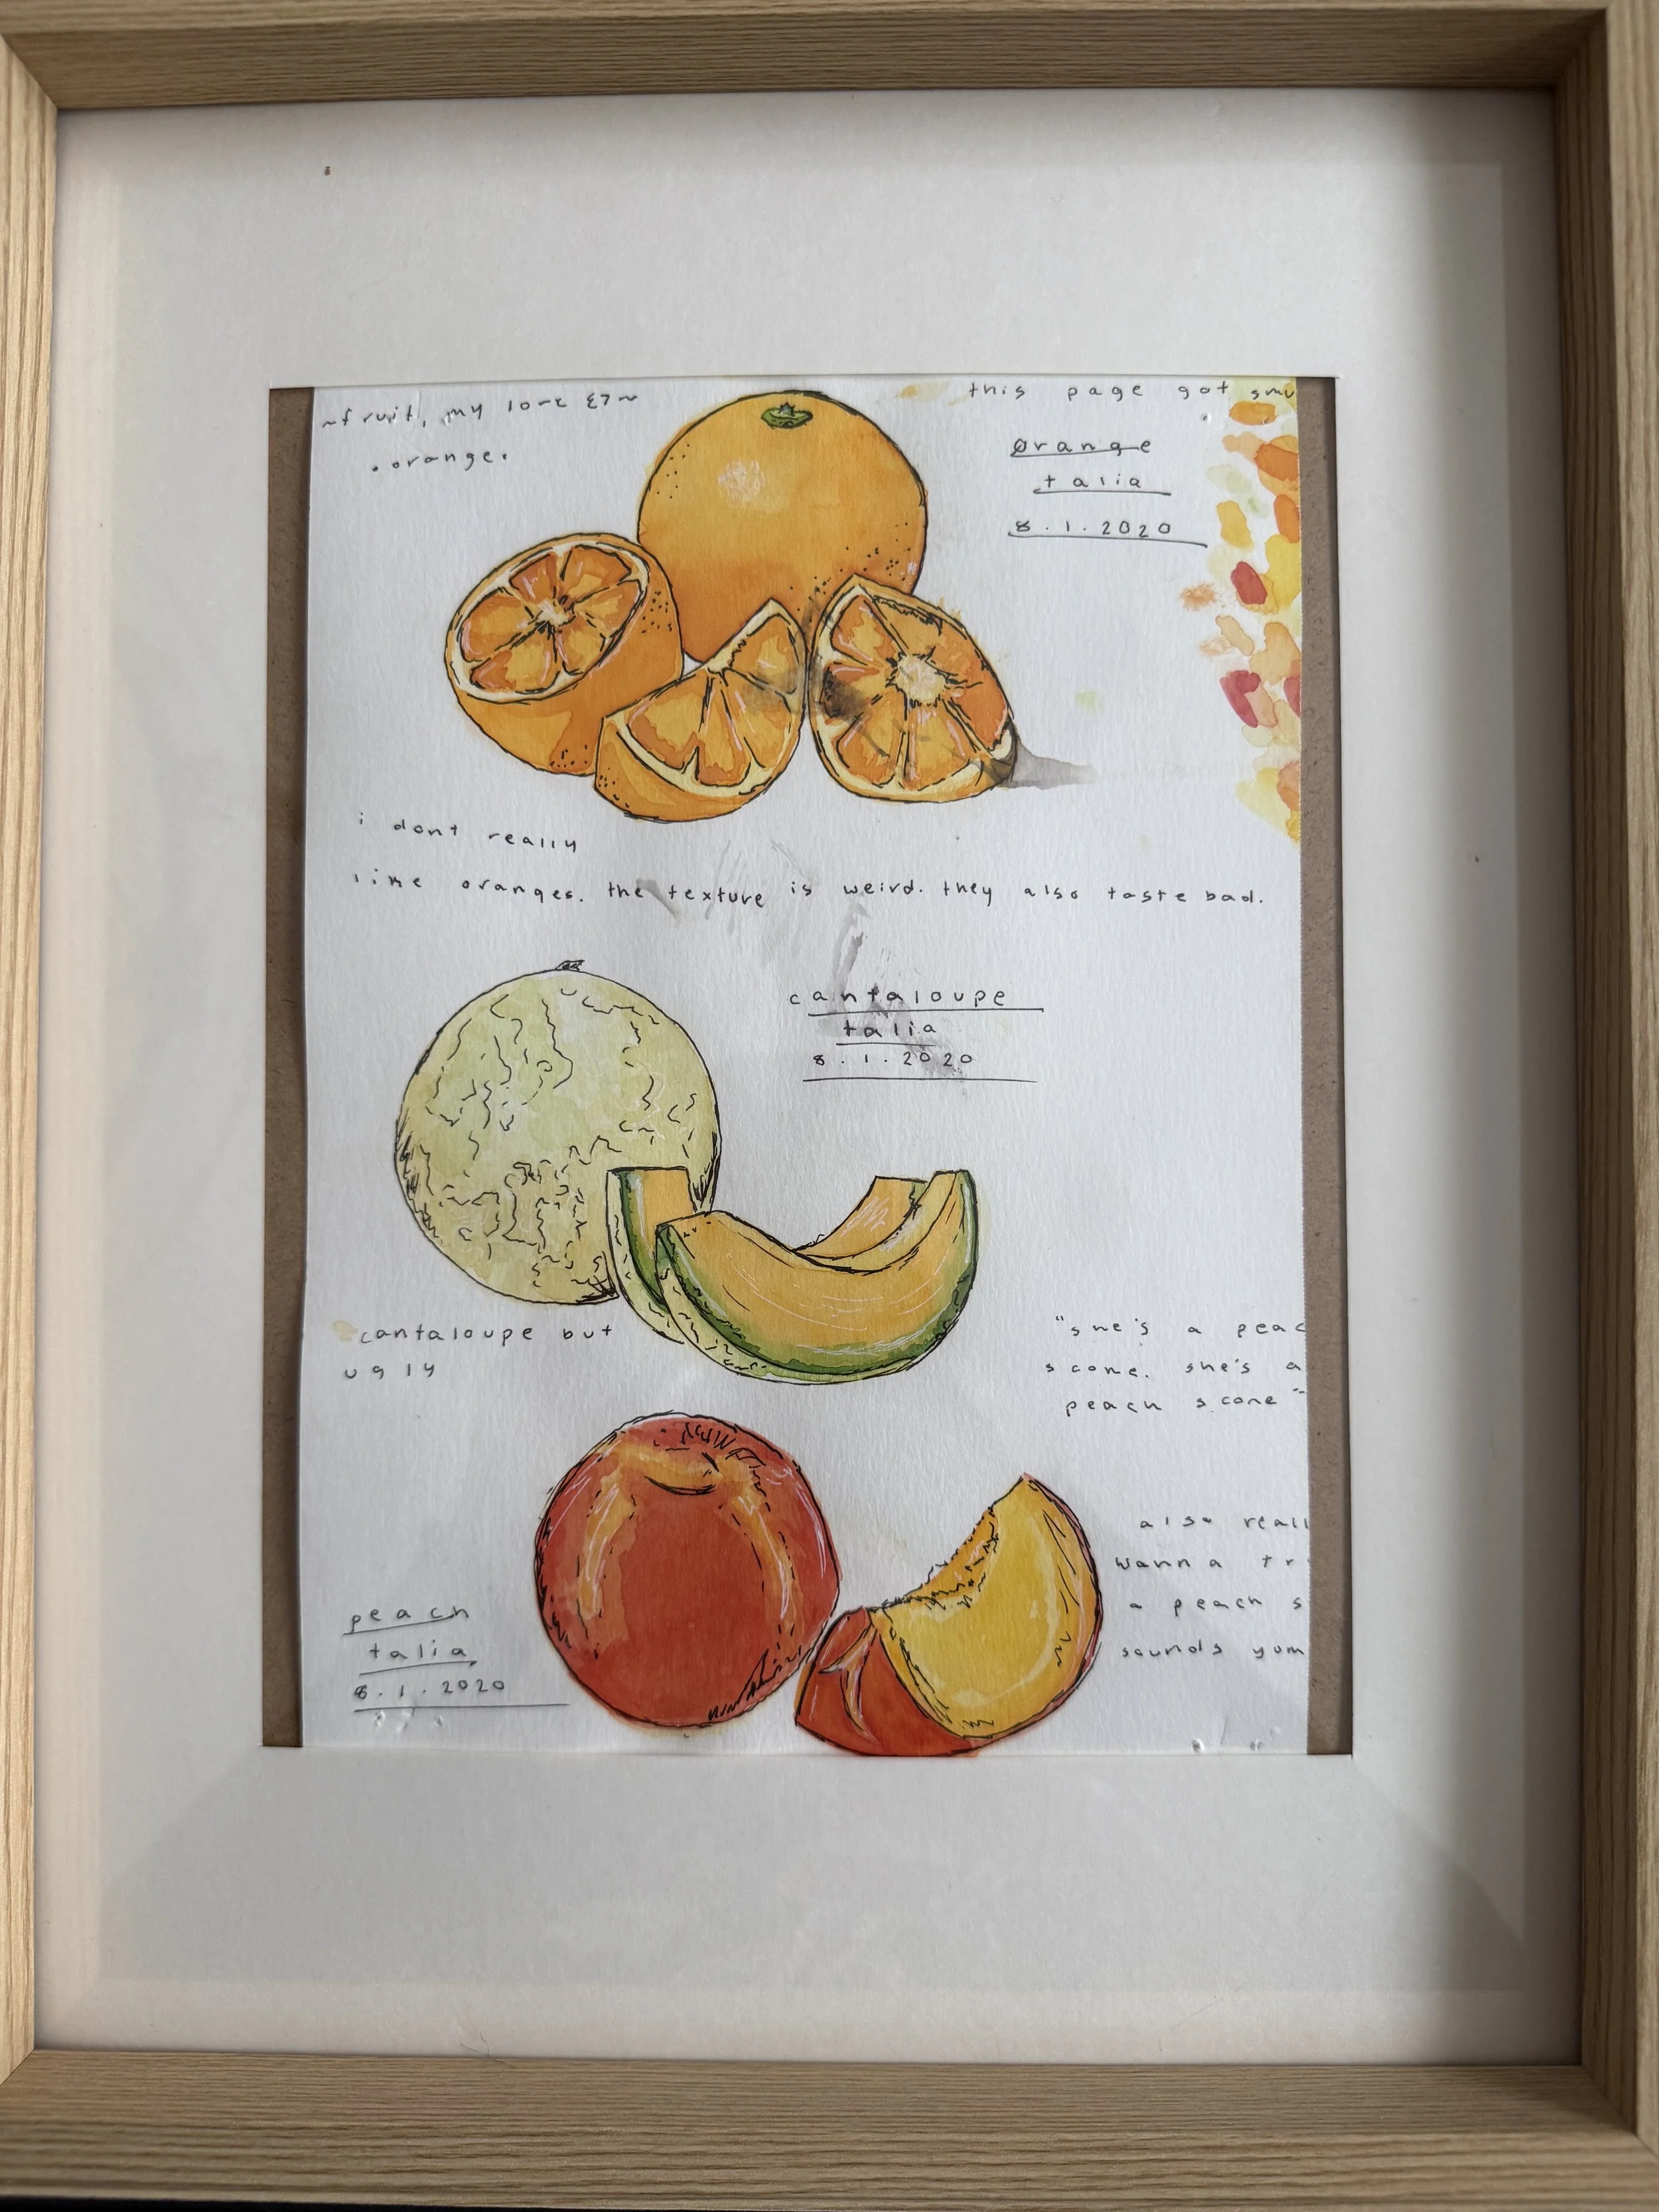 ~fruit, my love ε7~
.orange.
this page got smu
Orange
talia
8.1.2020
i dont really
like oranges. the texture is weird. they also taste bad.
cantaloupe
talia
8.1.2020
cantaloupe but
ugly
"she's a peac
scone. she's a
peach scone"
also reall
wanna tr
a peach s
sounds yum
peach
talia
8.1.2020